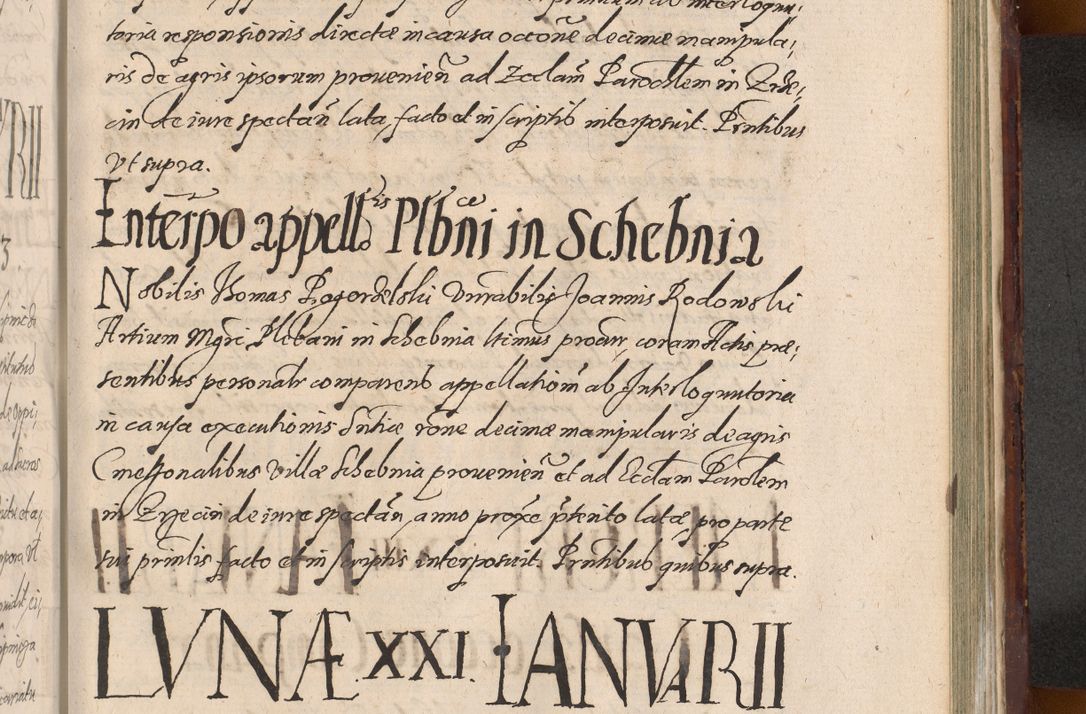 toria responsionis directæ in causa occoñe decimæ manipula,
ris de agris ipsorum prouenieñ ad Ecclam Parochlem in Erze,
cin de iure spectañ lata, facto et in scriptis interposuit. Prntibus
vt supra.
Interpo appellõis Plbni in Schebnia
Nobilis Thomas Pogorzelski Vnrabilis Joannis Rodowski
Artium Mgri, Plebani in Schebnia ltimus procur, coram Actis præ,
sentibus personalr comparens appellationm ab Interloquutoria
in causa executionis sntiæ rõne decimæ manipularis de agris
Cmettonalibus villæ Schebnia prouenieñ et ad Ecclam Parolem
in Erzecin de iure spectañ, anno proxe prterito latæ, pro parte
sui prinlis facto et in scriptis interposuit. Prntibus quibus supra.
LVNÆ XXI. IANVARII